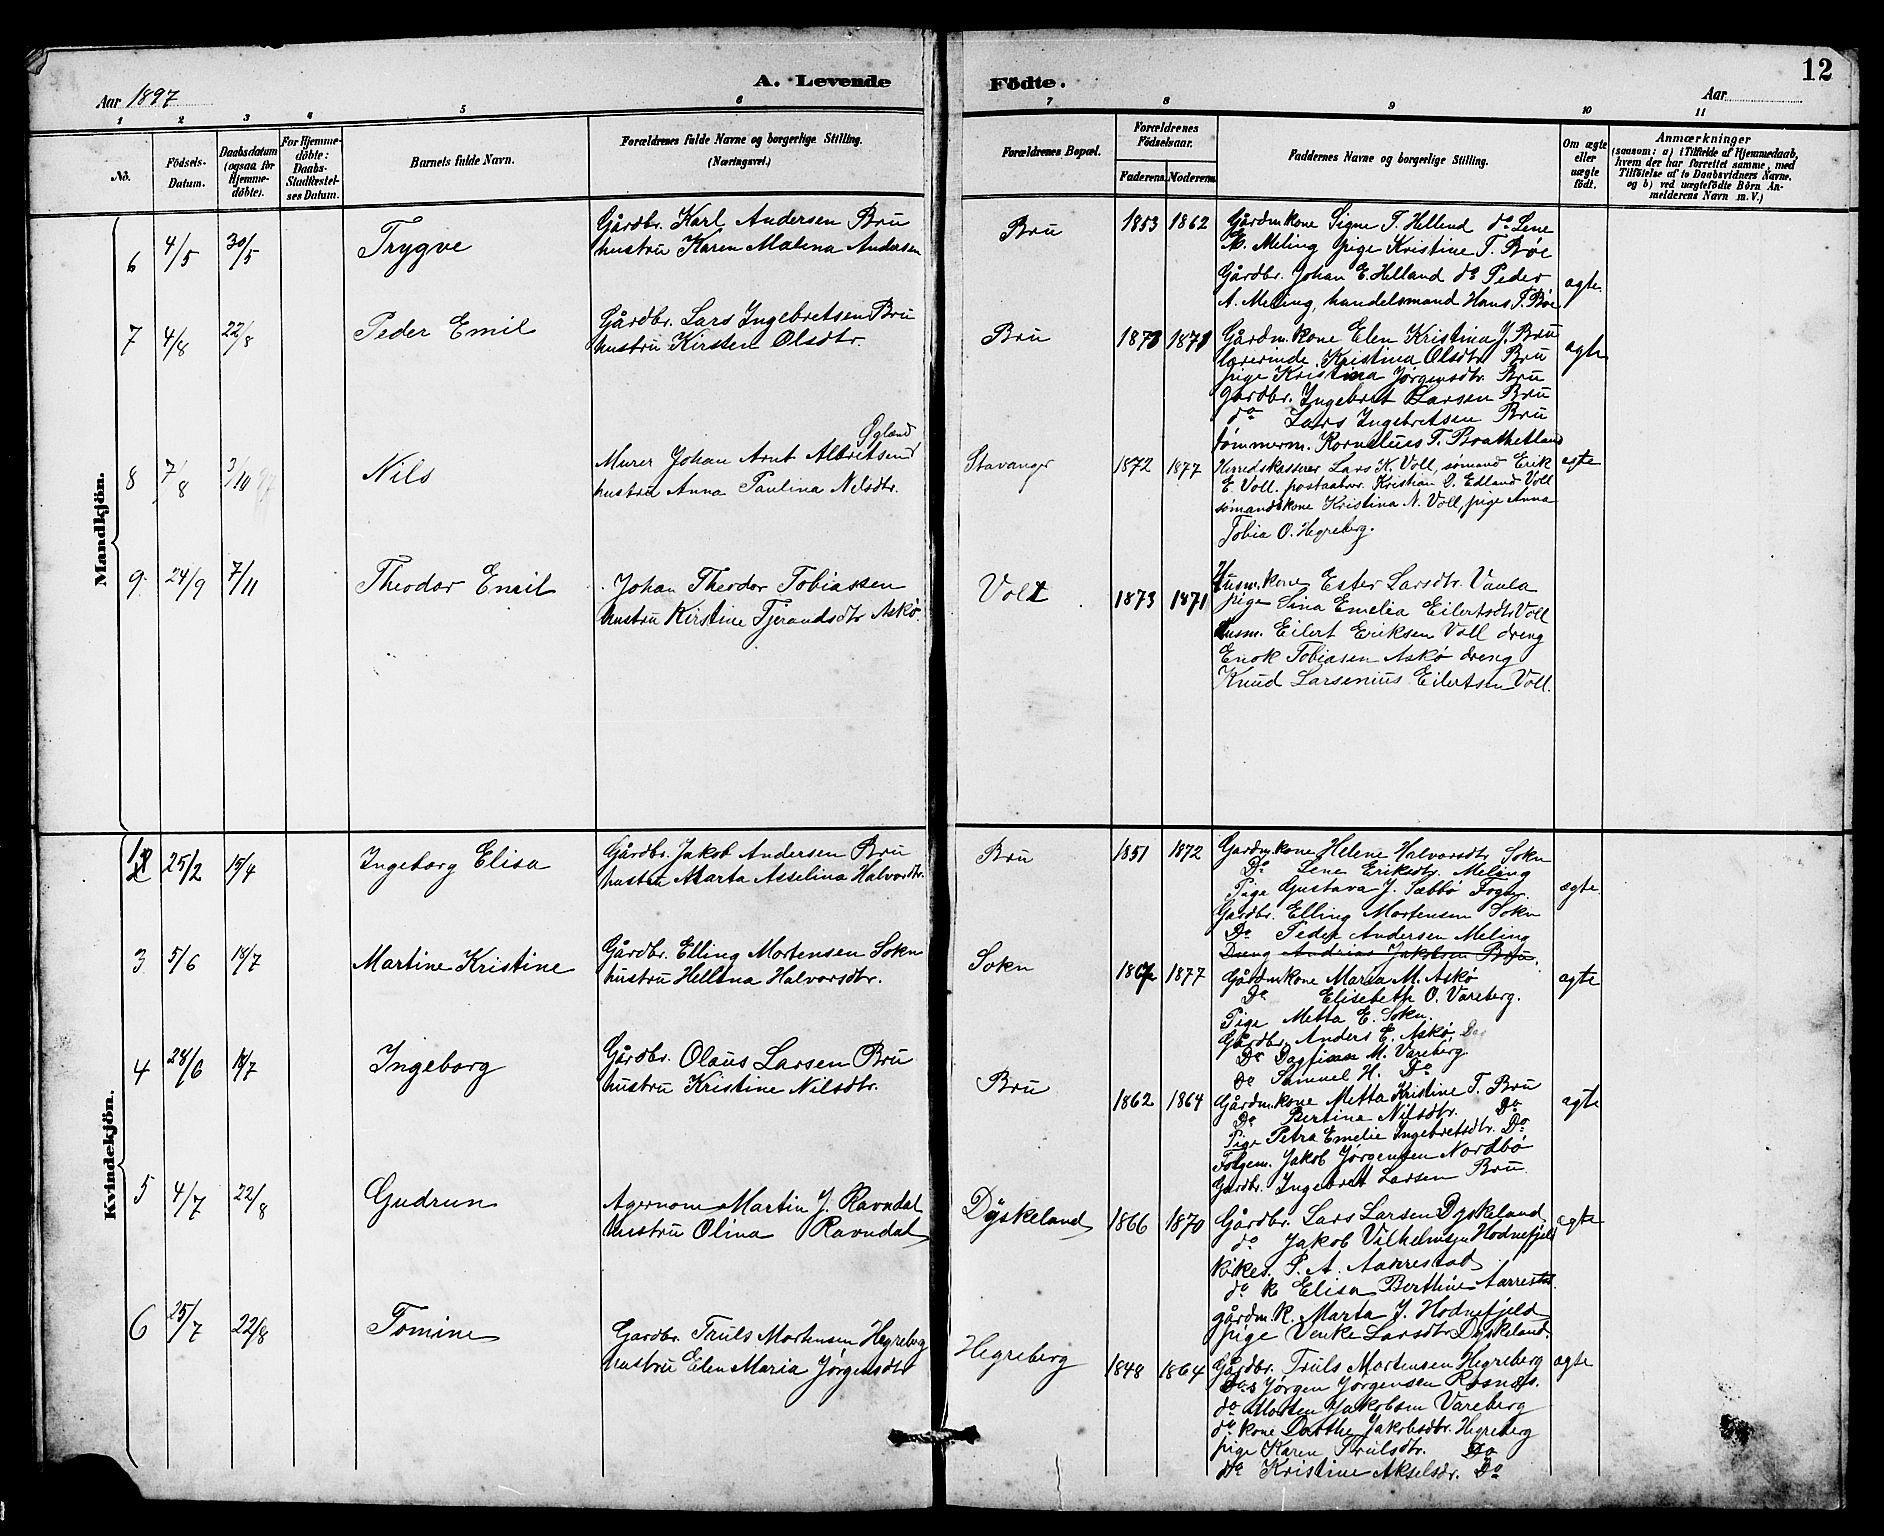 12
Aar 1897
A. Levende
Födte.
Aar
1 2 3 4 5 6 7 8 9 10 11
No.
Födsels-
Datum.
Daabsdatum
(ogsaa för
Hjemme-
döbte).
For Hjemme-
döbte:
Daabs-
Stadfæstel-
ses Datum.
Barnets fulde Navn.
Forældrenes fulde Navne og borgerlige Stilling.
(Næringsvei.)
Forældrenes Bopæl.
Forældrenes
Födselsaar.
Faderens
Moderens
Faddernes Navne og borgerlige Stilling.
Om ægte
eller
uægte
födt.
Anmærkninger
(saasom: a) i Tilfælde af Hjemmedaab,
hvem der har forrettet samme, med
Tilföielse af to Daabsvidners Navne.
og b) ved uægtefödte Börn An-
melderens Navn m. V.)
Mandkjön.
6 4/5 30/5 Trygve
Gårdbr. Karl Andersen Bru
hustru Karen Malena Andersen
Bru 1853 1862
Gårdm.kone Signe T. Helland do Lene
E. Meling pige Kristine T. Bøe
Gårdbr. Johan E. Helland do Peder
A. Meling, handelsmand Hans T. Bøe
ægte.
7 4/8 22/8 Peder Emil
Gårdbr. Lars Ingebretsen Bru
hustru Kirsten Olsdtr.
Bru 1873 1871
Gårdm.kone Elen Kristina J. Bru
lærerinde Kristina Olsdtr. Bru
pige Kristina Jørgensdtr. Bru
gårdbr. Ingebret Larsen Bru
do Lars Ingebretsen Bru
tømmerm. Kornelius T. Brathetland
ægte
8 7/8 3/10 97 Nils
Øgland
Murer Johan Arnt Albretsen
hustru Anna Paulina Nilsdtr.
Stavanger 1872 1877
Herredskasserer Lars K. Voll, sømand Erik
E. Voll. postaabner Kristian O. Edland Voll
sømandskone Kristina N. Voll, pige Anna
Tobia O. Hegreberg.
ægte
9. 24/9 7/11 Theodor Emil
Johan Theodor Tobiassen
hustru Kirstine Tjerandsdtr Askø.
Voll 1873 1871
Husm.kone Ester Larsdtr. Vaula
pige Sina Emelia Eilertsdtr Voll
husm. Eilert Eriksen Voll dreng
Enok Tobiasen Askø dreng
Knud Larsenius Eilertsen Voll.
Kvindekjön.
2 25/2 15/4 Ingeborg Elisa
Gårdbr. Jakob Andersen Bru
hustru Marta Asselina Halvorsdtr.
Bru 1851 1872
Gardm.kone Helene Halvorsdtr Sokn
Do Lene Eriksdtr. Meling
Pige Gustava J. Sæbbø Fogn
Gardbr. Elling Mortensen Sokn
Do Peder Andersen Meling
Dreng Andrias Jakobsen Bru.
ægte.
3 5/6 18/7 Martine Kristine
Gårdbr. Elling Mortensen Sokn
hustru Hellena Halvorsdtr.
Sokn 1867 1877
Gårdmkone Maria M. Askø
Do Elisebeth O. Vareberg.
Pige Metta E. Sokn.
Gårdbr. Anders E. Askø.
Do Dagfinn M. Vareberg.
Do Samuel H. Do
ægte
4 28/6 18/7 Ingeborg
Gårdbr. Olaus Larsen Bru
hustru Kristine Nilsdtr.
Bru 1862 1864
Gårdm.kone Metta Kristine T. Bru
Do Bertine Nilsdtr. Do
Pige Petra Emelie Ingebretsdtr. Do
Folgem. Jakob Jørgensen Nordbø
Gårdbr. Ingebret Larsen Bru
ægte
5 4/7 22/8 Gudrun
Agernom Martin J. Ravndal
hustru Olina Ravndal
Dyskeland 1866 1870
Gårdbr. Lars Larsen Dyskeland
do Jakob Vilhelmsen Hodnefjeld
kirkes. P. A. Aarrestad
do k Elisa Berthine Aarrestad
gårdm.k. Marta J. Hodnefjeld
pige Venke Larsdtr. Dyskeland.
ægte
6 25/7 22/8 Tomine
Gardbr. Truls Mortensen Hegreberg
hustru Elen Maria Jørgensdtr
Hegreberg 1848 1864
Gårdbr. Truls Mortensen Hegreberg
Do Jørgen Jørgensen Rosnes.
do Morten Jakobsen Vareberg
do kone Dorthe Jakobsdtr. Hegreberg
pige Karen Trulsdtr. Do
do Kristine Akselsdr. Do
ægte